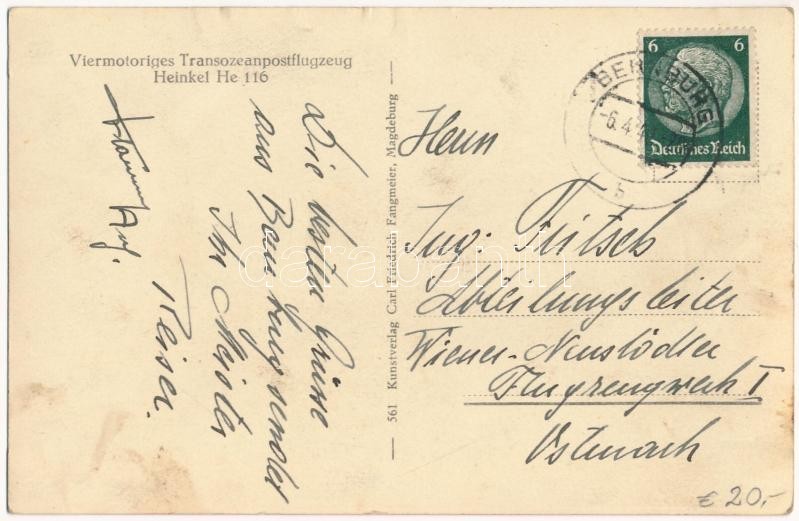 Viermotoriges Transozeanpostflugzeug
Heinkel He 116
Die besten Grüsse
aus Bernburg sendet
Ihr Meister
Reiser.
561 Kunstverlag Carl Friedrich Fangmeier, Magdeburg
6 6
Deutsches Reich
BERNBURG
-6.4.4
b
Herrn
Ing. Fritsch
Abteilungsleiter
Wiener-Neustädter
Flugzeugwerk I
Ostmark
€ 20,-
darabanth